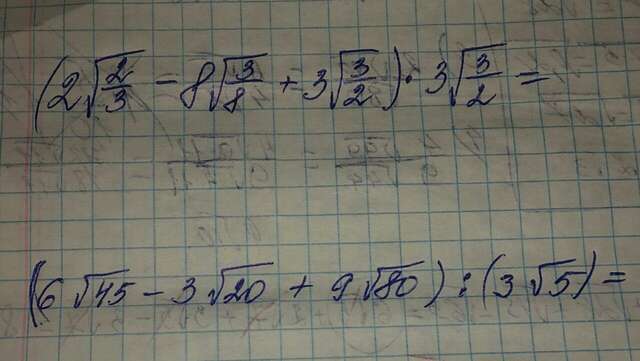 (2√(2/3) − 8√(3/8) + 3√(3/2)) · 3√(3/2) =
(6√45 − 3√20 + 9√80) : (3√5) =